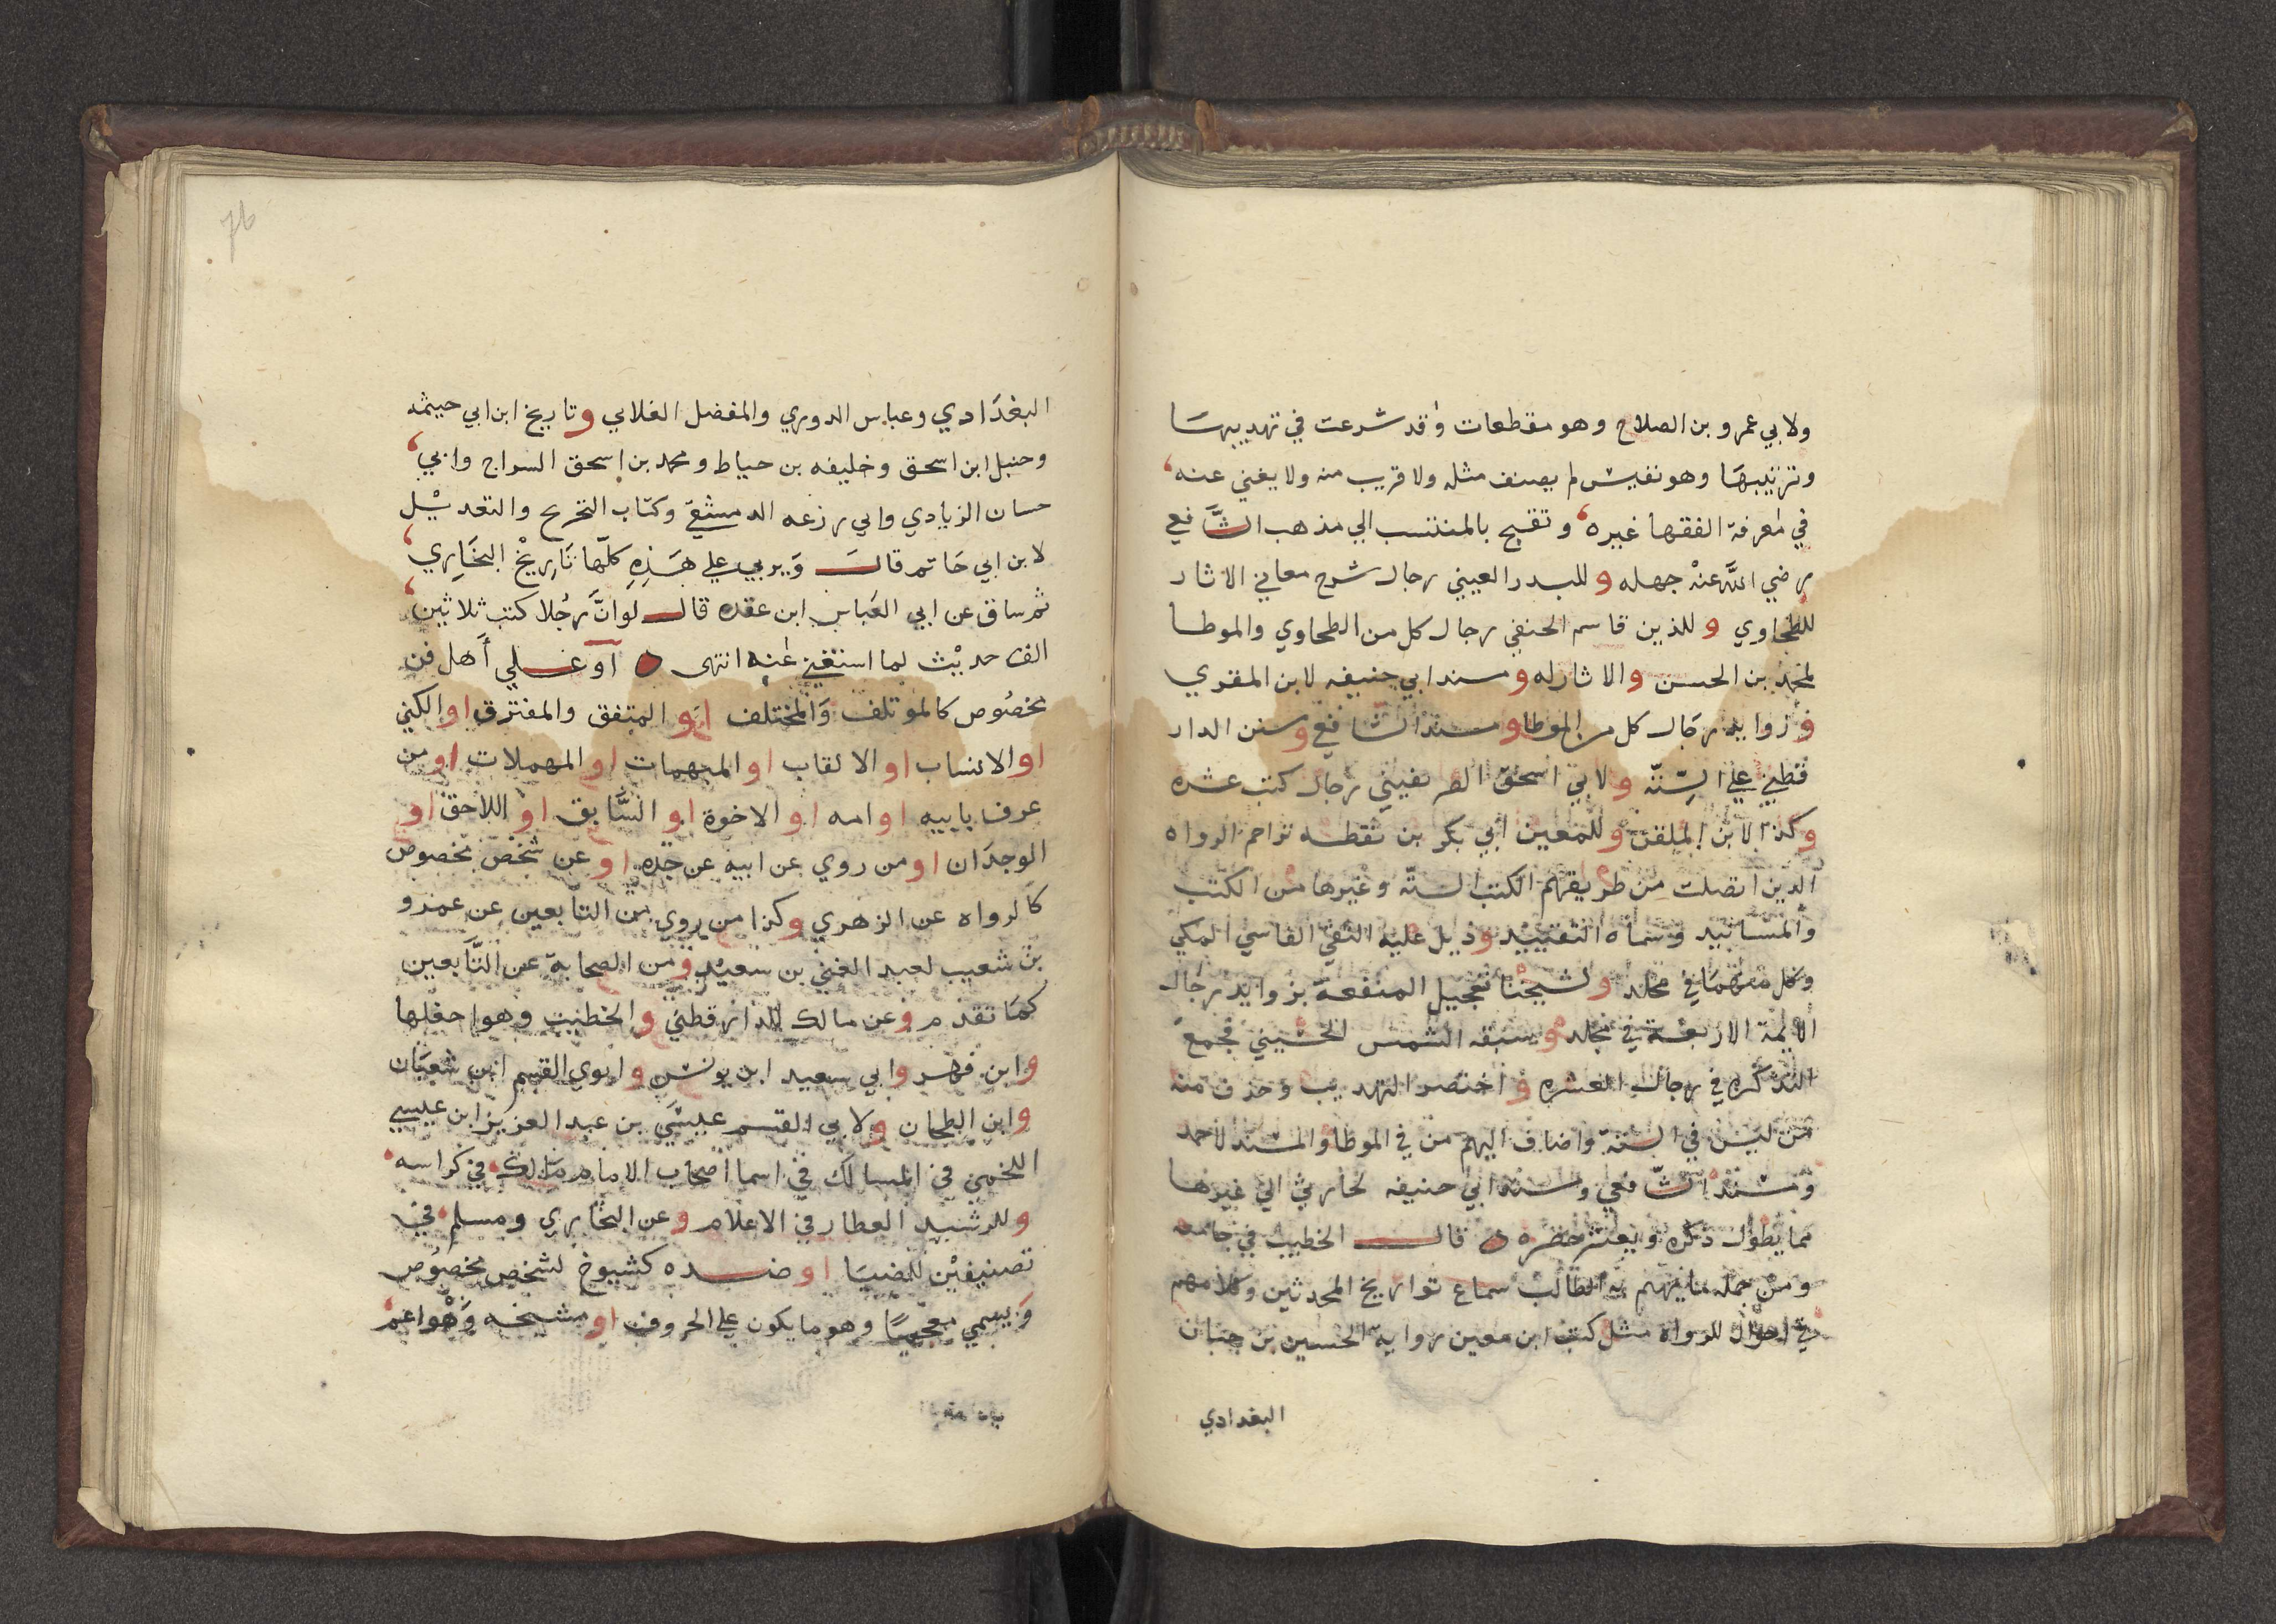 ولابي عمرو بن الصلاح وهو مقطعات وقد شرعت في تهذيبها
وترتيبها وهو نفيس لم يصنف مثله ولا قريب منه ولا يغني عنه
في معرفة الفقها غيره وتقبح بالمنتسب الي مذهب الشافعي
رضي الله عنه جهله وللبدر العيني رجال شرح معاني الاثار
للطحاوي وللذين قاسم الحنفي رجال كل من الطحاوي والموطا
لمحمد بن الحسن والاثار له ومسند ابي حنيفه لابن المقري
وزوايد رجال كل من الموطا ومسند الشافعي وسنن الدار
قطني علي الستة ولابي اسحق الصريفيني رجال كتب عشره
وكذا لابن الملقن وللمعين ابي بكر بن نقطه تراجم الرواه
الذين اتصلت من طريقهم الكتب الستة وغيرها من الكتب
والمسانيد وسماه التقييد وذيل عليه التقي الفاسي المكي
وكل منهما في مجلد ولشيخنا تعجيل المنفعة بزوايد رجال
الايمة الاربعة في مجلد وسبقه الشمس الحسيني فجمع
التذكره في رجال العشره واختصر التهذيب وحذف منه
من ليس في الستة واضاف اليهم من في الموطا والمسند لاحمد
ومسند الشافعي ومسند ابي حنيفه لحارثي الي غيرها
مما يطول ذكره ويعسر حضره قال الخطيب في جامعه
ومن جمله ما يهتم به الطالب سماع تواريخ المحدثين وكلامهم
في احوال الرواة مثل كتب ابن معين رواية الحسين بن حبان
البغدادي
76
البغدادي وعباس الدوري والمفضل الغلابي وتاريخ ابن ابي حيثمه
وحنبل ابن اسحق وخليفه بن حياط ومحمد بن اسحق السراج وابي
حسان الزيادي وابي زرعه الدمشقي وكتاب التجريح والتعديل
لابن ابي حاتم قال ويربي علي هذه كلها تاريخ البخاري
ثم ساق عن ابي العباس ابن عقده قال لو ان رجلا كتب ثلاثين
الف حديث لما استغني عنه انتهى او علي اهل فن
بخصوص كالموتلف والمختلف او المتفق والمفترق او الكني
او الانساب او الالقاب او المبهمات او المهملات او من
عرف بابيه او امه او الاخوة او السابق او اللاحق او
الوجدان او من روي عن ابيه عن جده او عن شخص بخصوص
كالرواه عن الزهري وكذا من روي من التابعين عن عمرو
بن شعيب لعبد الغني بن سعيد ومن الصحابة عن التابعين
كما تقدم وعن مالك للدارقطني والخطيب وهو احفلها
وابن فهر وابي سعيد ابن يونس وابوي القسم ابن شعبان
وابن الطحان ولابي القسم عيسى بن عبد العزيز ابن عيسي
اللخمي في المسالك في اسما اصحاب الامام مالك في كراسه
وللرشيد العطار في الاعلام وعن البخاري ومسلم في
تصنيفين للضيا او ضده كشيوخ لشخص بخصوص
ويسمي معجما وهو ما يكون علي الحروف او مشيخه وهو اعم